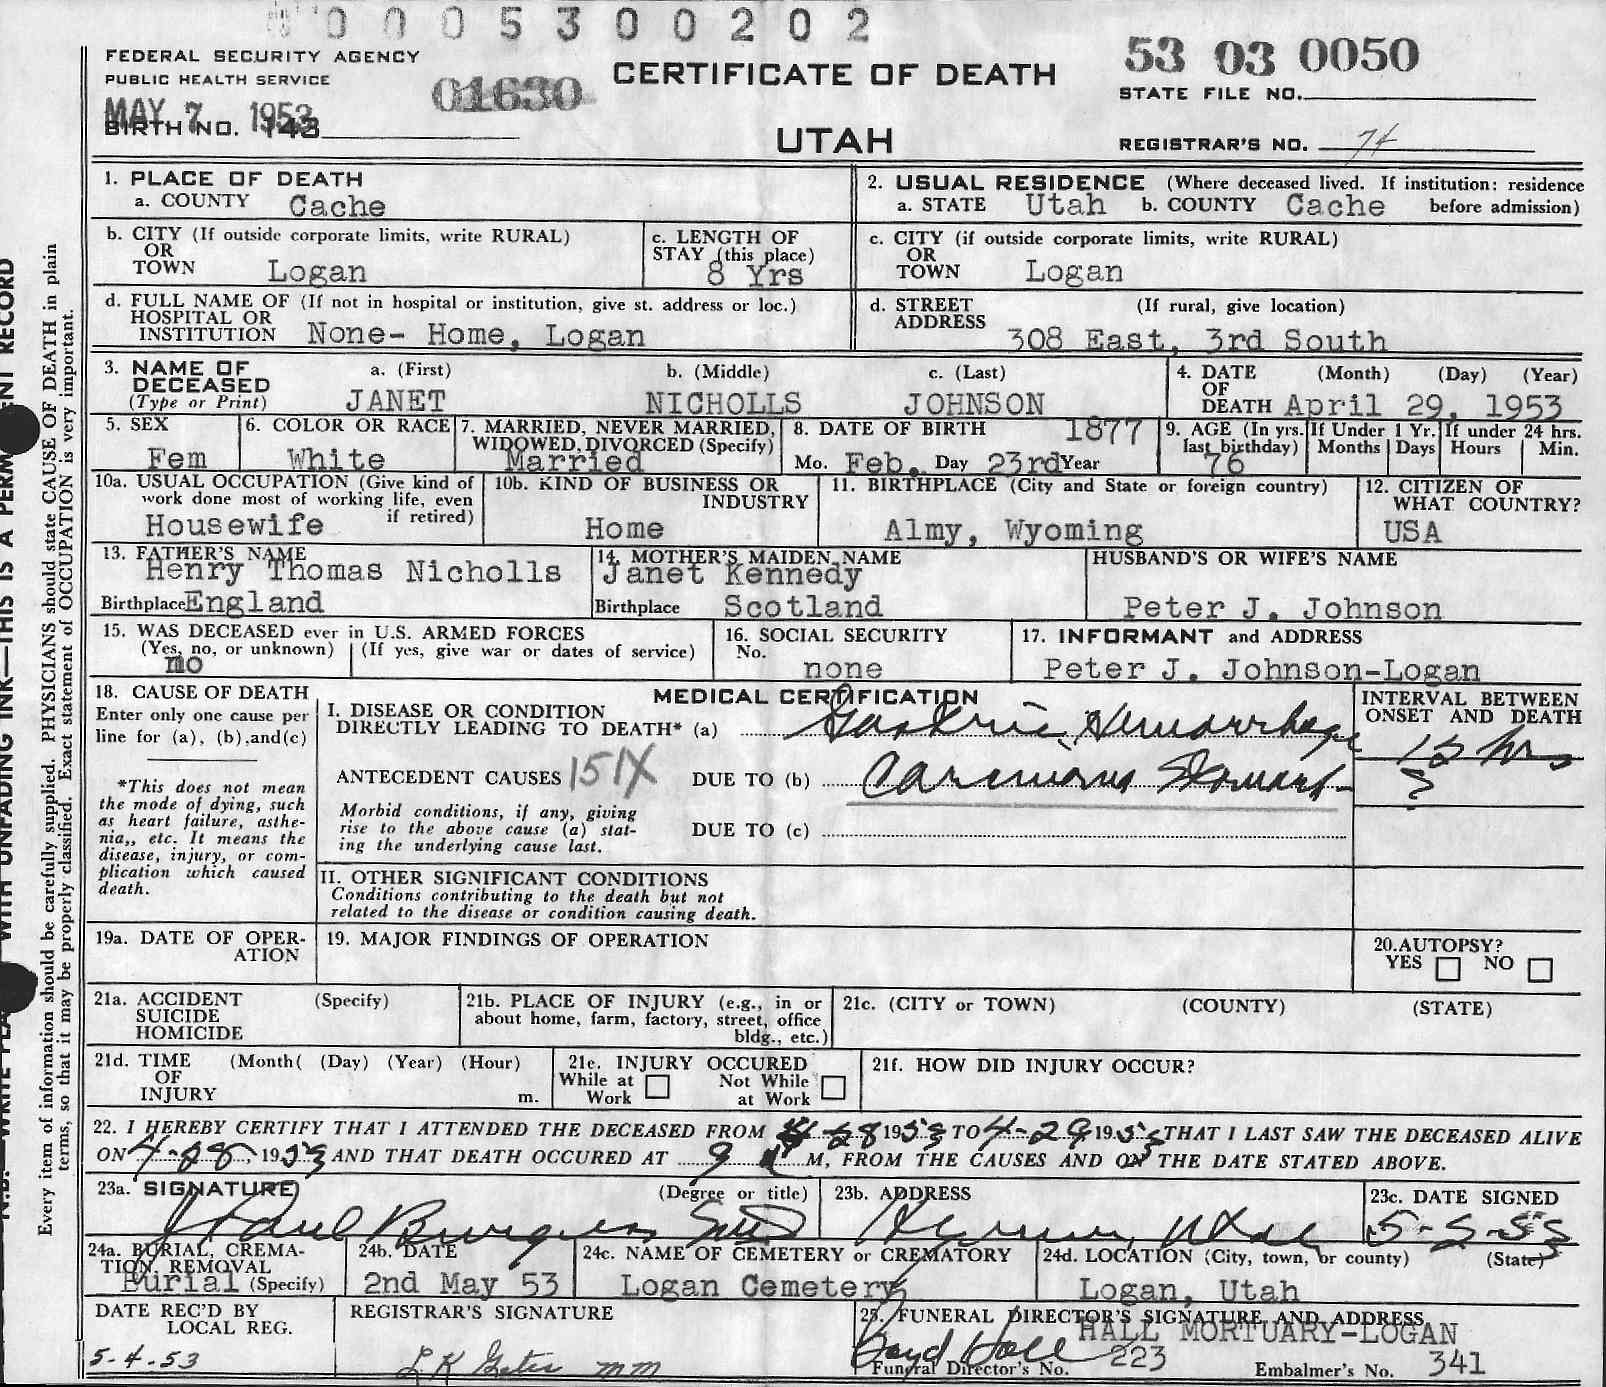 0 0 0 5 3 0 0 2 0 2
FEDERAL SECURITY AGENCY
PUBLIC HEALTH SERVICE
MAY 7 1953
BIRTH NO. 143
01630
CERTIFICATE OF DEATH
UTAH
53 03 0050
STATE FILE NO.
REGISTRAR'S NO. 74
1. PLACE OF DEATH
a. COUNTY Cache
2. USUAL RESIDENCE (Where deceased lived. If institution: residence
a. STATE Utah b. COUNTY Cache before admission)
b. CITY (If outside corporate limits, write RURAL)
OR
TOWN Logan
c. LENGTH OF
STAY (this place)
8 Yrs
c. CITY (if outside corporate limits, write RURAL)
OR
TOWN Logan
d. FULL NAME OF (If not in hospital or institution, give st. address or loc.)
HOSPITAL OR
INSTITUTION None- Home, Logan
d. STREET (If rural, give location)
ADDRESS
308 East, 3rd South
3. NAME OF a. (First) b. (Middle) c. (Last)
DECEASED
(Type or Print) JANET NICHOLLS JOHNSON
4. DATE (Month) (Day) (Year)
OF
DEATH April 29, 1953
5. SEX
Fem
6. COLOR OR RACE
White
7. MARRIED, NEVER MARRIED,
WIDOWED, DIVORCED (Specify)
Married
8. DATE OF BIRTH 1877
Mo. Feb. Day 23rd Year
9. AGE (In yrs.
last birthday)
76
If Under 1 Yr.
Months Days
If under 24 hrs.
Hours Min.
10a. USUAL OCCUPATION (Give kind of
work done most of working life, even
if retired)
Housewife
10b. KIND OF BUSINESS OR
INDUSTRY
Home
11. BIRTHPLACE (City and State or foreign country)
Almy, Wyoming
12. CITIZEN OF
WHAT COUNTRY?
USA
13. FATHER'S NAME
Henry Thomas Nicholls
Birthplace England
14. MOTHER'S MAIDEN NAME
Janet Kennedy
Birthplace Scotland
HUSBAND'S OR WIFE'S NAME
Peter J. Johnson
15. WAS DECEASED ever in U.S. ARMED FORCES
(Yes, no, or unknown) (If yes, give war or dates of service)
no
16. SOCIAL SECURITY
No.
none
17. INFORMANT and ADDRESS
Peter J. Johnson-Logan
18. CAUSE OF DEATH
Enter only one cause per
line for (a), (b), and (c)
*This does not mean
the mode of dying, such
as heart failure, asthe-
nia,, etc. It means the
disease, injury, or com-
plication which caused
death.
MEDICAL CERTIFICATION
I. DISEASE OR CONDITION
DIRECTLY LEADING TO DEATH* (a) Gastric Hemorrhage
ANTECEDENT CAUSES 151X DUE TO (b) Carcinoma Stomach
Morbid conditions, if any, giving
rise to the above cause (a) stat-
ing the underlying cause last.
DUE TO (c)
INTERVAL BETWEEN
ONSET AND DEATH
hrs
?
II. OTHER SIGNIFICANT CONDITIONS
Conditions contributing to the death but not
related to the disease or condition causing death.
19a. DATE OF OPER-
ATION
19. MAJOR FINDINGS OF OPERATION
20. AUTOPSY?
YES NO
21a. ACCIDENT (Specify)
SUICIDE
HOMICIDE
21b. PLACE OF INJURY (e.g., in or
about home, farm, factory, street, office
bldg., etc.)
21c. (CITY or TOWN) (COUNTY) (STATE)
21d. TIME (Month( (Day) (Year) (Hour)
OF
INJURY m.
21e. INJURY OCCURED
While at Not While
Work at Work
21f. HOW DID INJURY OCCUR?
22. I HEREBY CERTIFY THAT I ATTENDED THE DECEASED FROM 4-28 1953 TO 4-29 1953 THAT I LAST SAW THE DECEASED ALIVE
ON 4-28, 1953 AND THAT DEATH OCCURED AT 9 M, FROM THE CAUSES AND ON THE DATE STATED ABOVE.
23a. SIGNATURE (Degree or title)
Paul Burgess MD
23b. ADDRESS
Hyrum, Utah
23c. DATE SIGNED
5-5-53
24a. BURIAL, CREMA-
TION, REMOVAL
Burial (Specify)
24b. DATE
2nd May 53
24c. NAME OF CEMETERY or CREMATORY
Logan Cemetery
24d. LOCATION (City, town, or county) (State)
Logan, Utah
DATE REC'D BY
LOCAL REG.
5-4-53
REGISTRAR'S SIGNATURE
mm
25. FUNERAL DIRECTOR'S SIGNATURE AND ADDRESS
HALL MORTUARY-LOGAN
Boyd Hall 223
Funeral Director's No. Embalmer's No. 341
Every item of information should be carefully supplied. PHYSICIANS should state CAUSE OF DEATH in plain
terms, so that it may be properly classified. Exact statement of OCCUPATION is very important.
WITH UNFADING INK—THIS IS A
RECORD